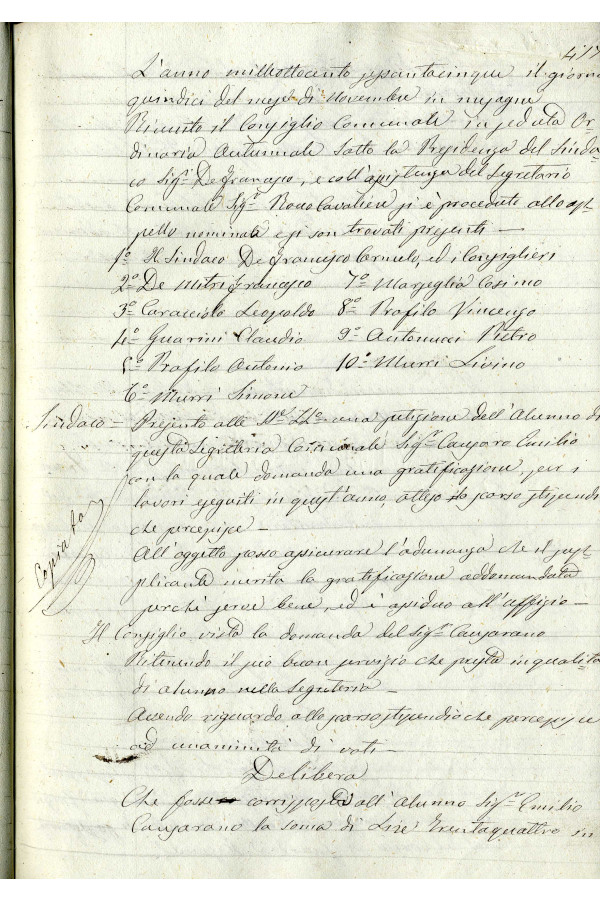 417
L'anno milleottocento sessantacinque il giorno
quindici del mese di Novembre in mesagne
Riunito il Consiglio Comunale in seduta Or
dinaria Autunnale sotto la Presidenza del Sinda
co Sig.r De Francesco, e coll'assistenza del Segretario
Comunale Sig.r Cavaliere si è proceduto allo ap
pello nominale e si son trovati presenti —
1.o Il Sindaco De Francesco Carmelo, ed i Consiglieri
2.o De Mitri Francesco 7.o Marseglia Cosimo
3.o Caracciolo Leopoldo 8.o Profilo Vincenzo
4.o Guarini Claudio 9.o Antonucci Pietro
5.o Profilo Antonio 10.o Murri Livino
6.o Murri Simone
Sindaco — Presento alle una petizione dell'Alunno di
questa Segreteria Comunale Sig.r Emilio
con la quale domanda una gratificazione, per i
lavori eseguiti in quest'anno, atteso lo scarso stipendi
che percepisce —
Copiata
All'oggetto posso assicurare l'adunanza che il sup=
plicante merita la gratificazione addomandata
perché serve bene, ed è assiduo all'uffizio —
Il Consiglio vista la domanda del Sig.r Cansarano
Ritenendo il più buon servizio che presta in qualità
di alunno nella Segreteria —
Avendo riguardo allo scarso stipendio che percepisce
ad unanimità di voti —
Delibera
Che corrisposta all'Alunno Sig.r Emilio
Cansarano la soma di Lire Trentaquattro in